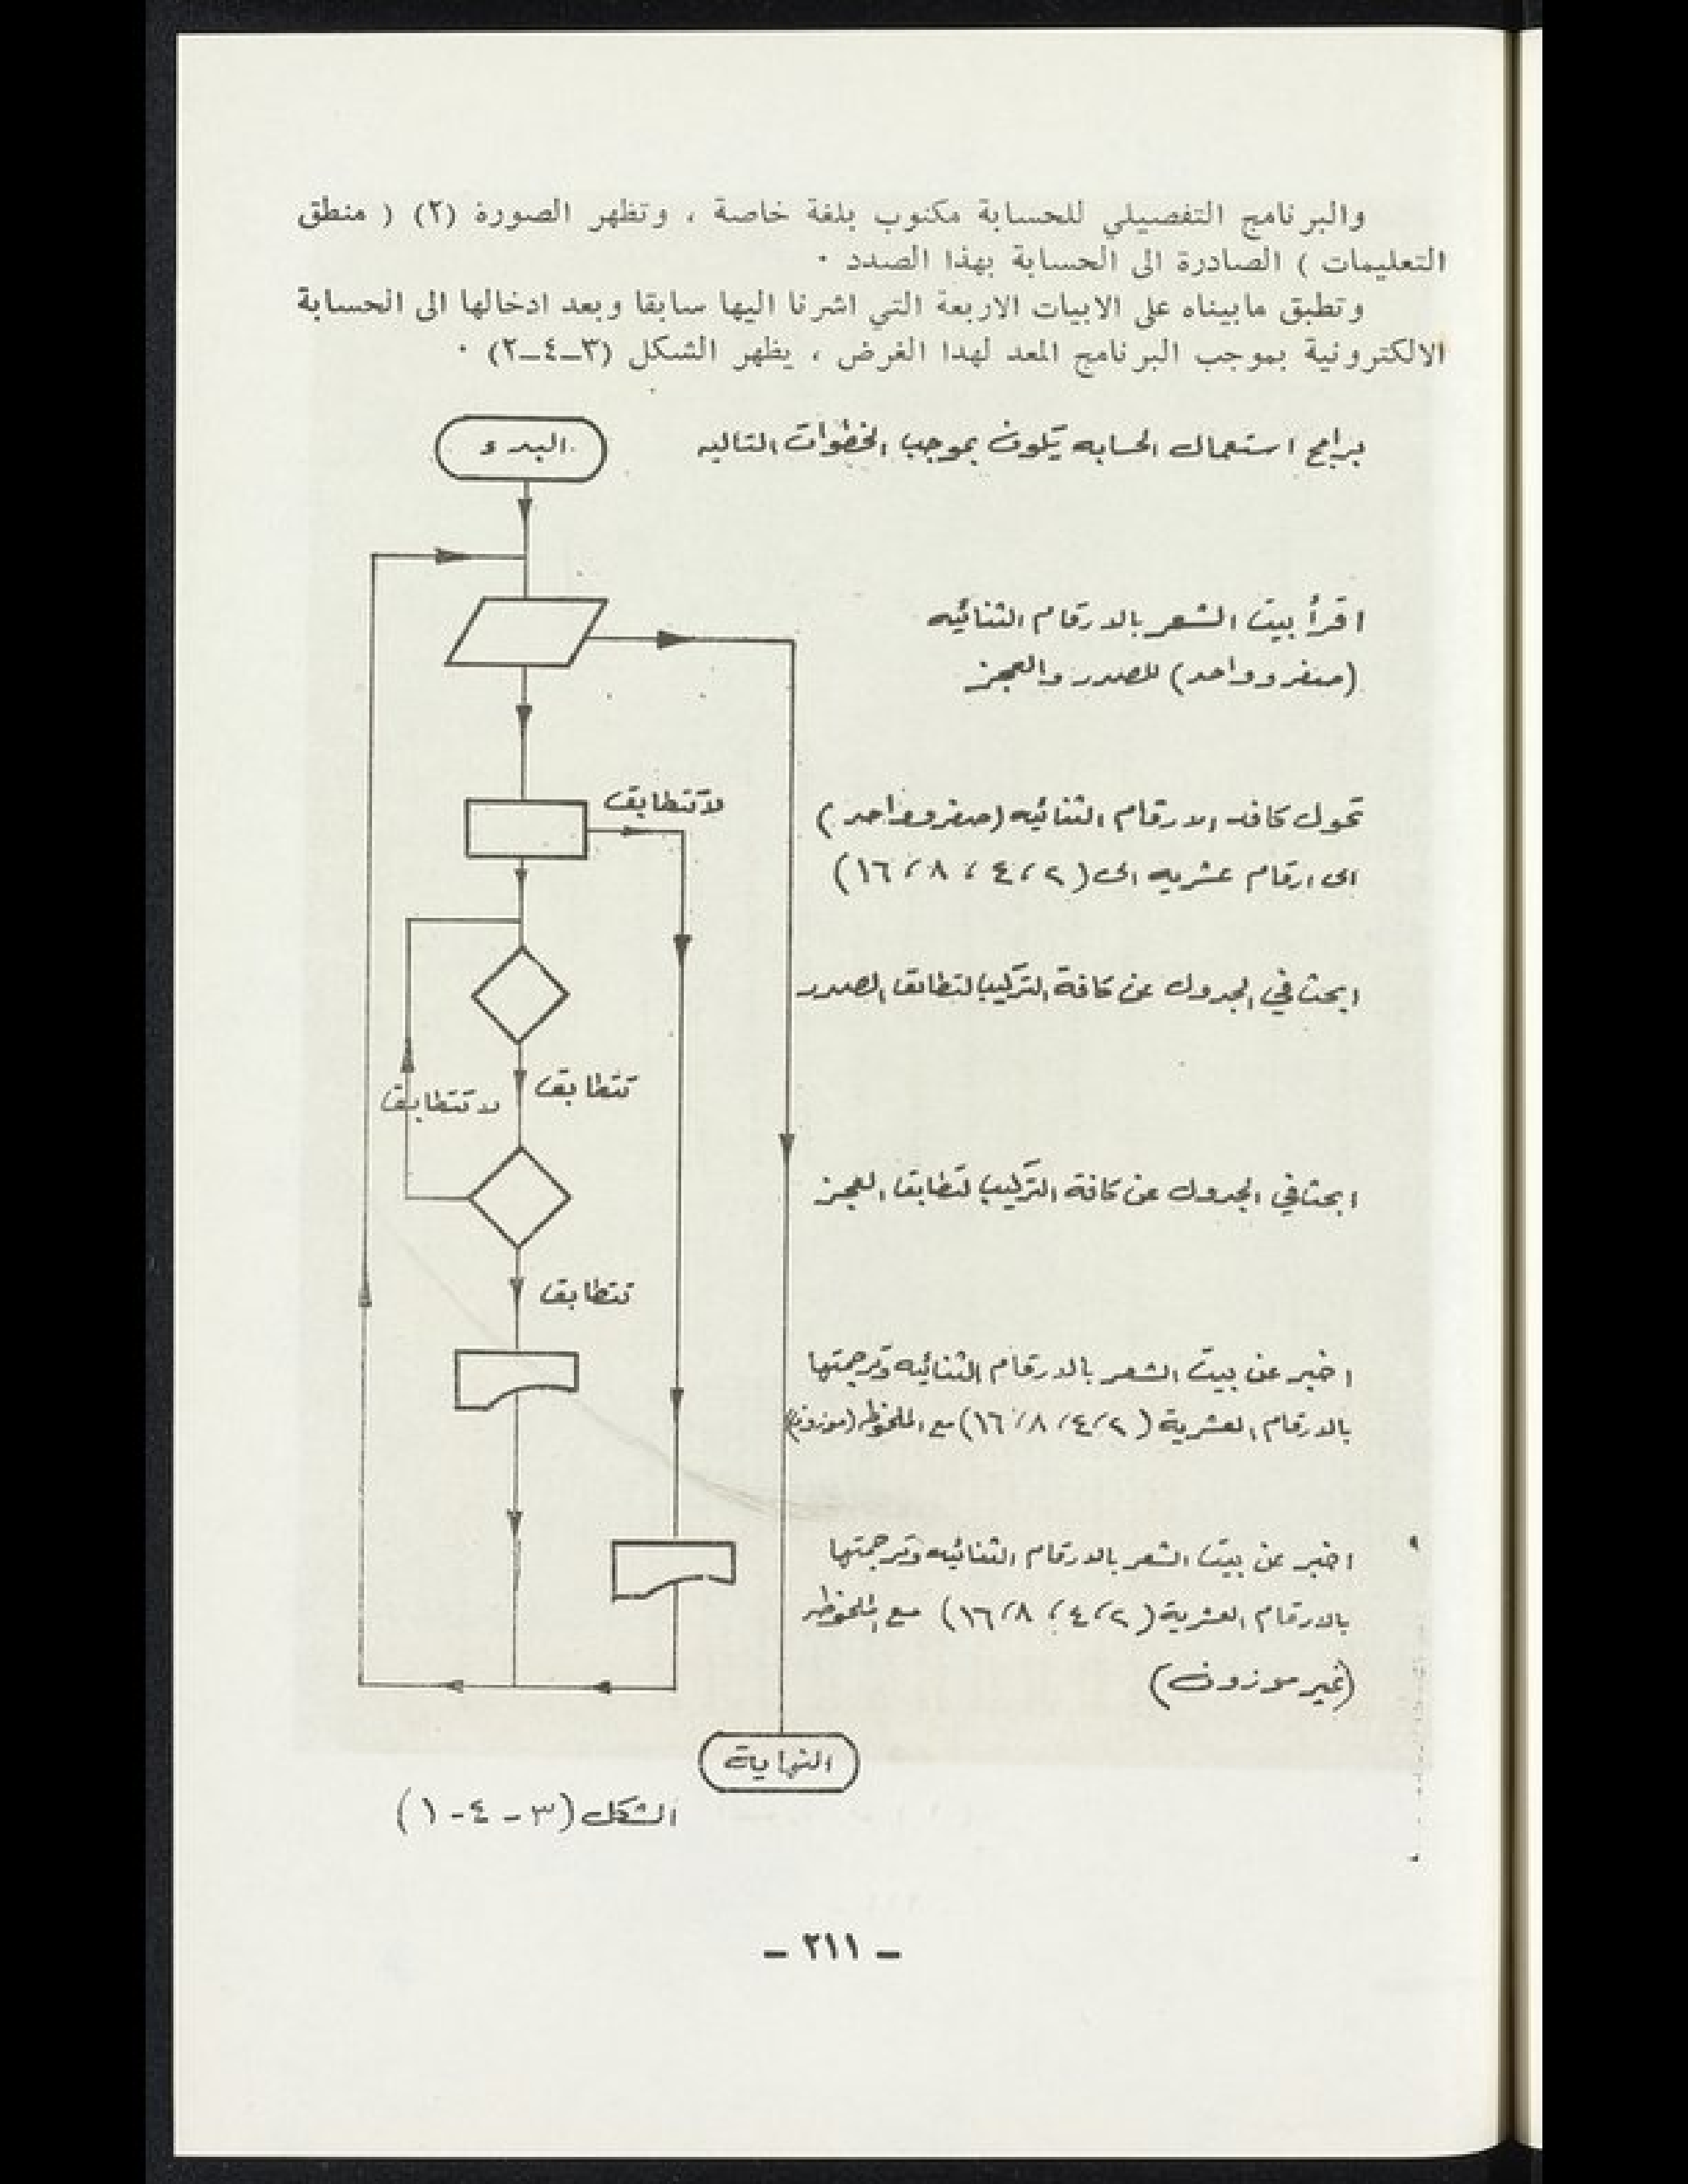 والبرنامج التفصيلي للحسابة مكتوب بلغة خاصة ، وتظهر الصورة (٢) ( منطق
التعليمات ) الصادرة الى الحسابة بهذا الصدد ·
وتطبق مابيناه على الابيات الاربعة التي اشرنا اليها سابقا وبعد ادخالها الى الحسابة
الالكترونية بموجب البرنامج المعد لهدا الغرض ، يظهر الشكل (٣–٤–٢) ·
برامج استعمال الحسابه يكون بموجب الخطوات التاليه
البدء
اقرأ بيت الشعر بالارقام الثنائيه
(صفر وواحد) للصدر والعجز
تحول كافه الارقام الثنائيه (صفر وواحد)
الى ارقام عشريه الى (٢ ، ٤ ، ٨ ، ١٦)
لاتتطابق
ابحث في الجدول عن كافة التركيب لتطابق الصدر
تتطابق
لا تتطابق
ابحث في الجدول عن كافة التركيب لتطابق العجز
تتطابق
اخبر عن بيت الشعر بالارقام الثنائيه وترجمتها
بالارقام العشرية (٢ ، ٤ ، ٨ ، ١٦) مع الملحوظه (موزون)
اخبر عن بيت الشعر بالارقام الثنائيه وترجمتها
بالارقام العشرية (٢ ، ٤ ، ٨ ، ١٦) مع الملحوظه
(غير موزون)
النهاية
الشكل (٣ - ٤ - ١)
– ٢١١ –